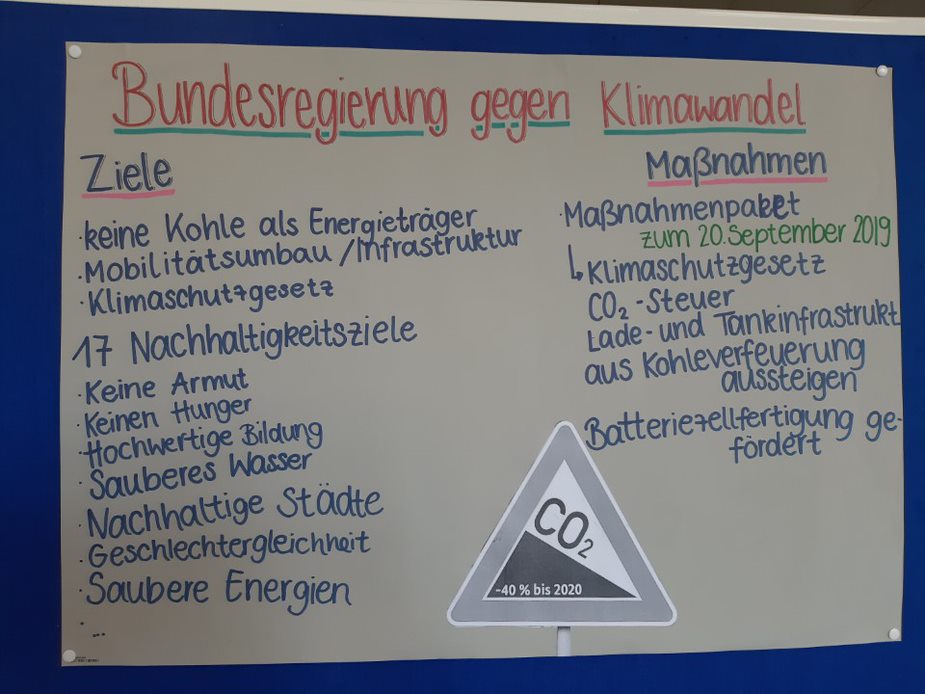 Bundesregierung gegen Klimawandel
Ziele
· keine Kohle als Energieträger
· Mobilitätsumbau / Infrastruktur
· Klimaschutzgesetz
17 Nachhaltigkeitsziele
· Keine Armut
· Keinen Hunger
· Hochwertige Bildung
· Sauberes Wasser
· Nachhaltige Städte
· Geschlechtergleichheit
· Saubere Energien
· ...
Maßnahmen
· Maßnahmenpaket
zum 20. September 2019
↳ Klimaschutzgesetz
CO₂-Steuer
Lade- und Tankinfrastrukt
aus Kohleverfeuerung
aussteigen
Batteriezellfertigung ge-
fördert
CO₂
-40 % bis 2020